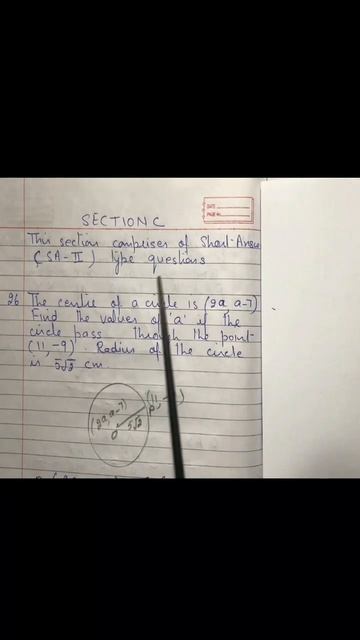 DATE
PAGE No.
SECTION C
This section comprises of Short-Answer
(SA-II) type questions
26 The centre of a circle is (2a, a-7)
Find the values of 'a' if the
circle pass through the point
(11, -9). Radius of the circle
is 5√2 cm.
(2a, a-7)
(11,
P
O
5√2